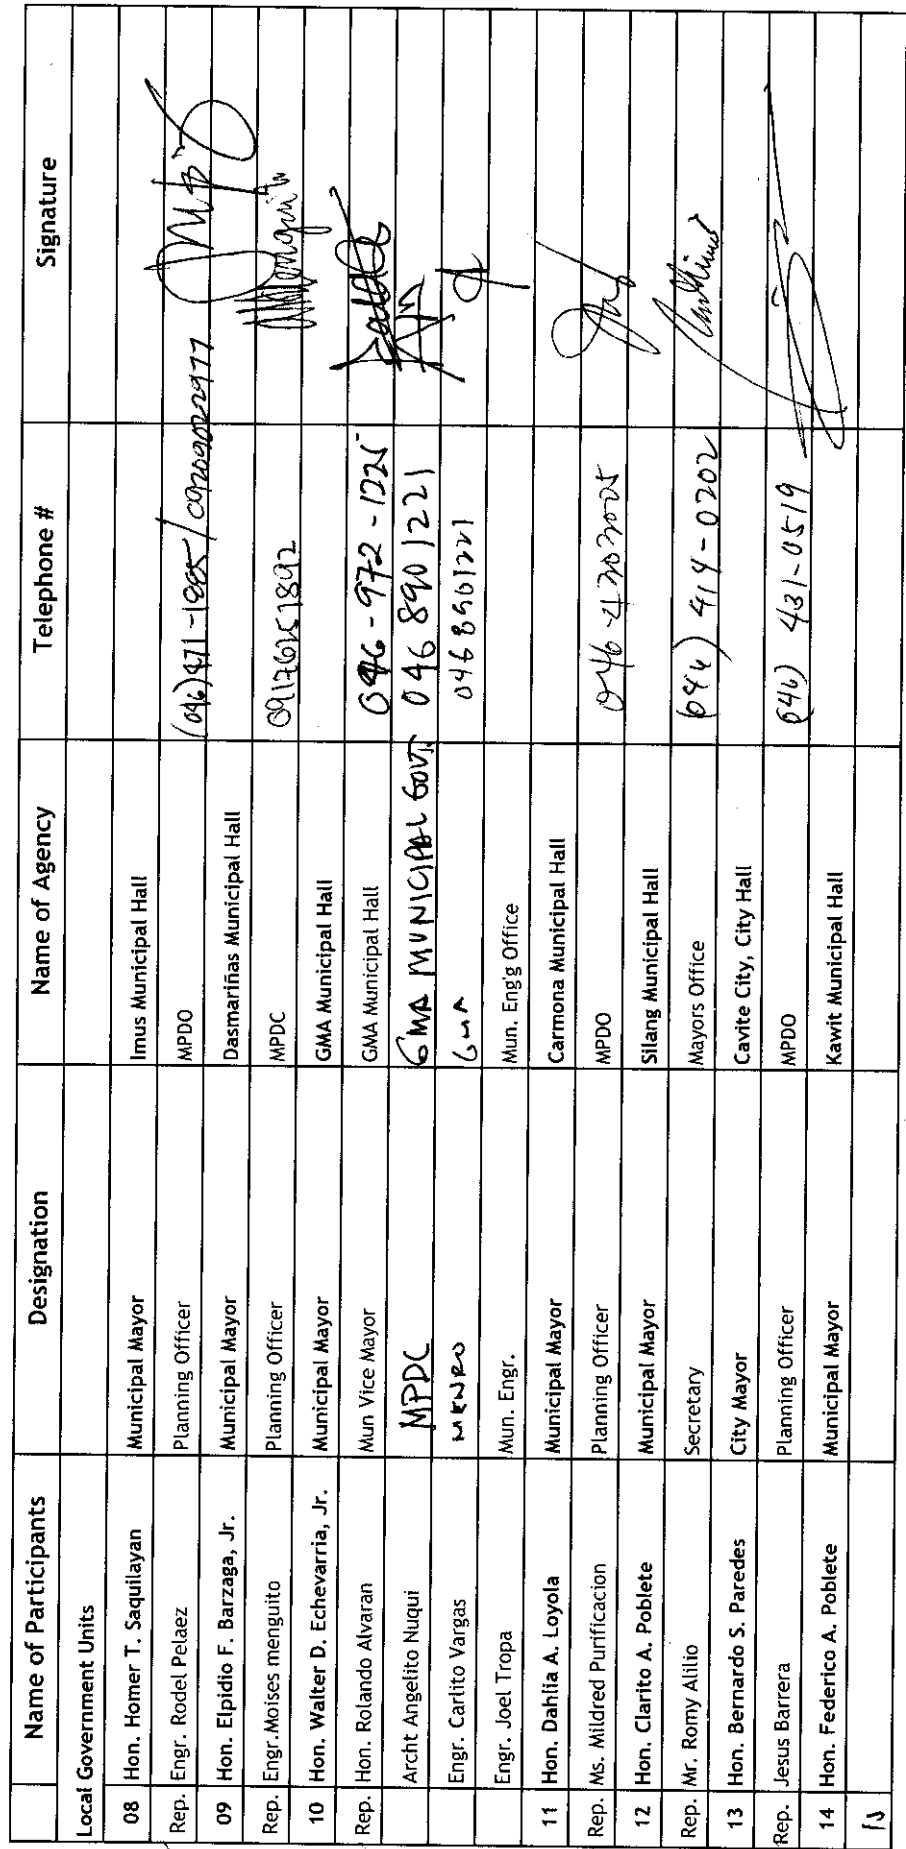 Name of Participants Designation Name of Agency Telephone # Signature
Local Government Units
08 Hon. Homer T. Saquilayan Municipal Mayor Imus Municipal Hall
Rep. Engr. Rodel Pelaez Planning Officer MPDO (046) 471-1885 / 09209022977
09 Hon. Elpidio F. Barzaga, Jr. Municipal Mayor Dasmariñas Municipal Hall
Rep. Engr.Moises menguito Planning Officer MPDC 09176251892
10 Hon. Walter D. Echevarria, Jr. Municipal Mayor GMA Municipal Hall
Rep. Hon. Rolando Alvaran Mun Vice Mayor GMA Municipal Hall 046-972-1225
Archt Angelito Nuqui MPDC GMA MUNICIPAL GOVT. 046 8901221
Engr. Carlito Vargas MENRO GMA 046 8901221
Engr. Joel Tropa Mun. Engr. Mun. Eng'g Office
11 Hon. Dahlia A. Loyola Municipal Mayor Carmona Municipal Hall
Rep. Ms. Mildred Purificacion Planning Officer MPDO
12 Hon. Clarito A. Poblete Municipal Mayor Silang Municipal Hall
Rep. Mr. Romy Alilio Secretary Mayors Office (046) 414-0202
13 Hon. Bernardo S. Paredes City Mayor Cavite City, City Hall
Rep. Jesus Barrera Planning Officer MPDO (046) 431-0519
14 Hon. Federico A. Poblete Municipal Mayor Kawit Municipal Hall